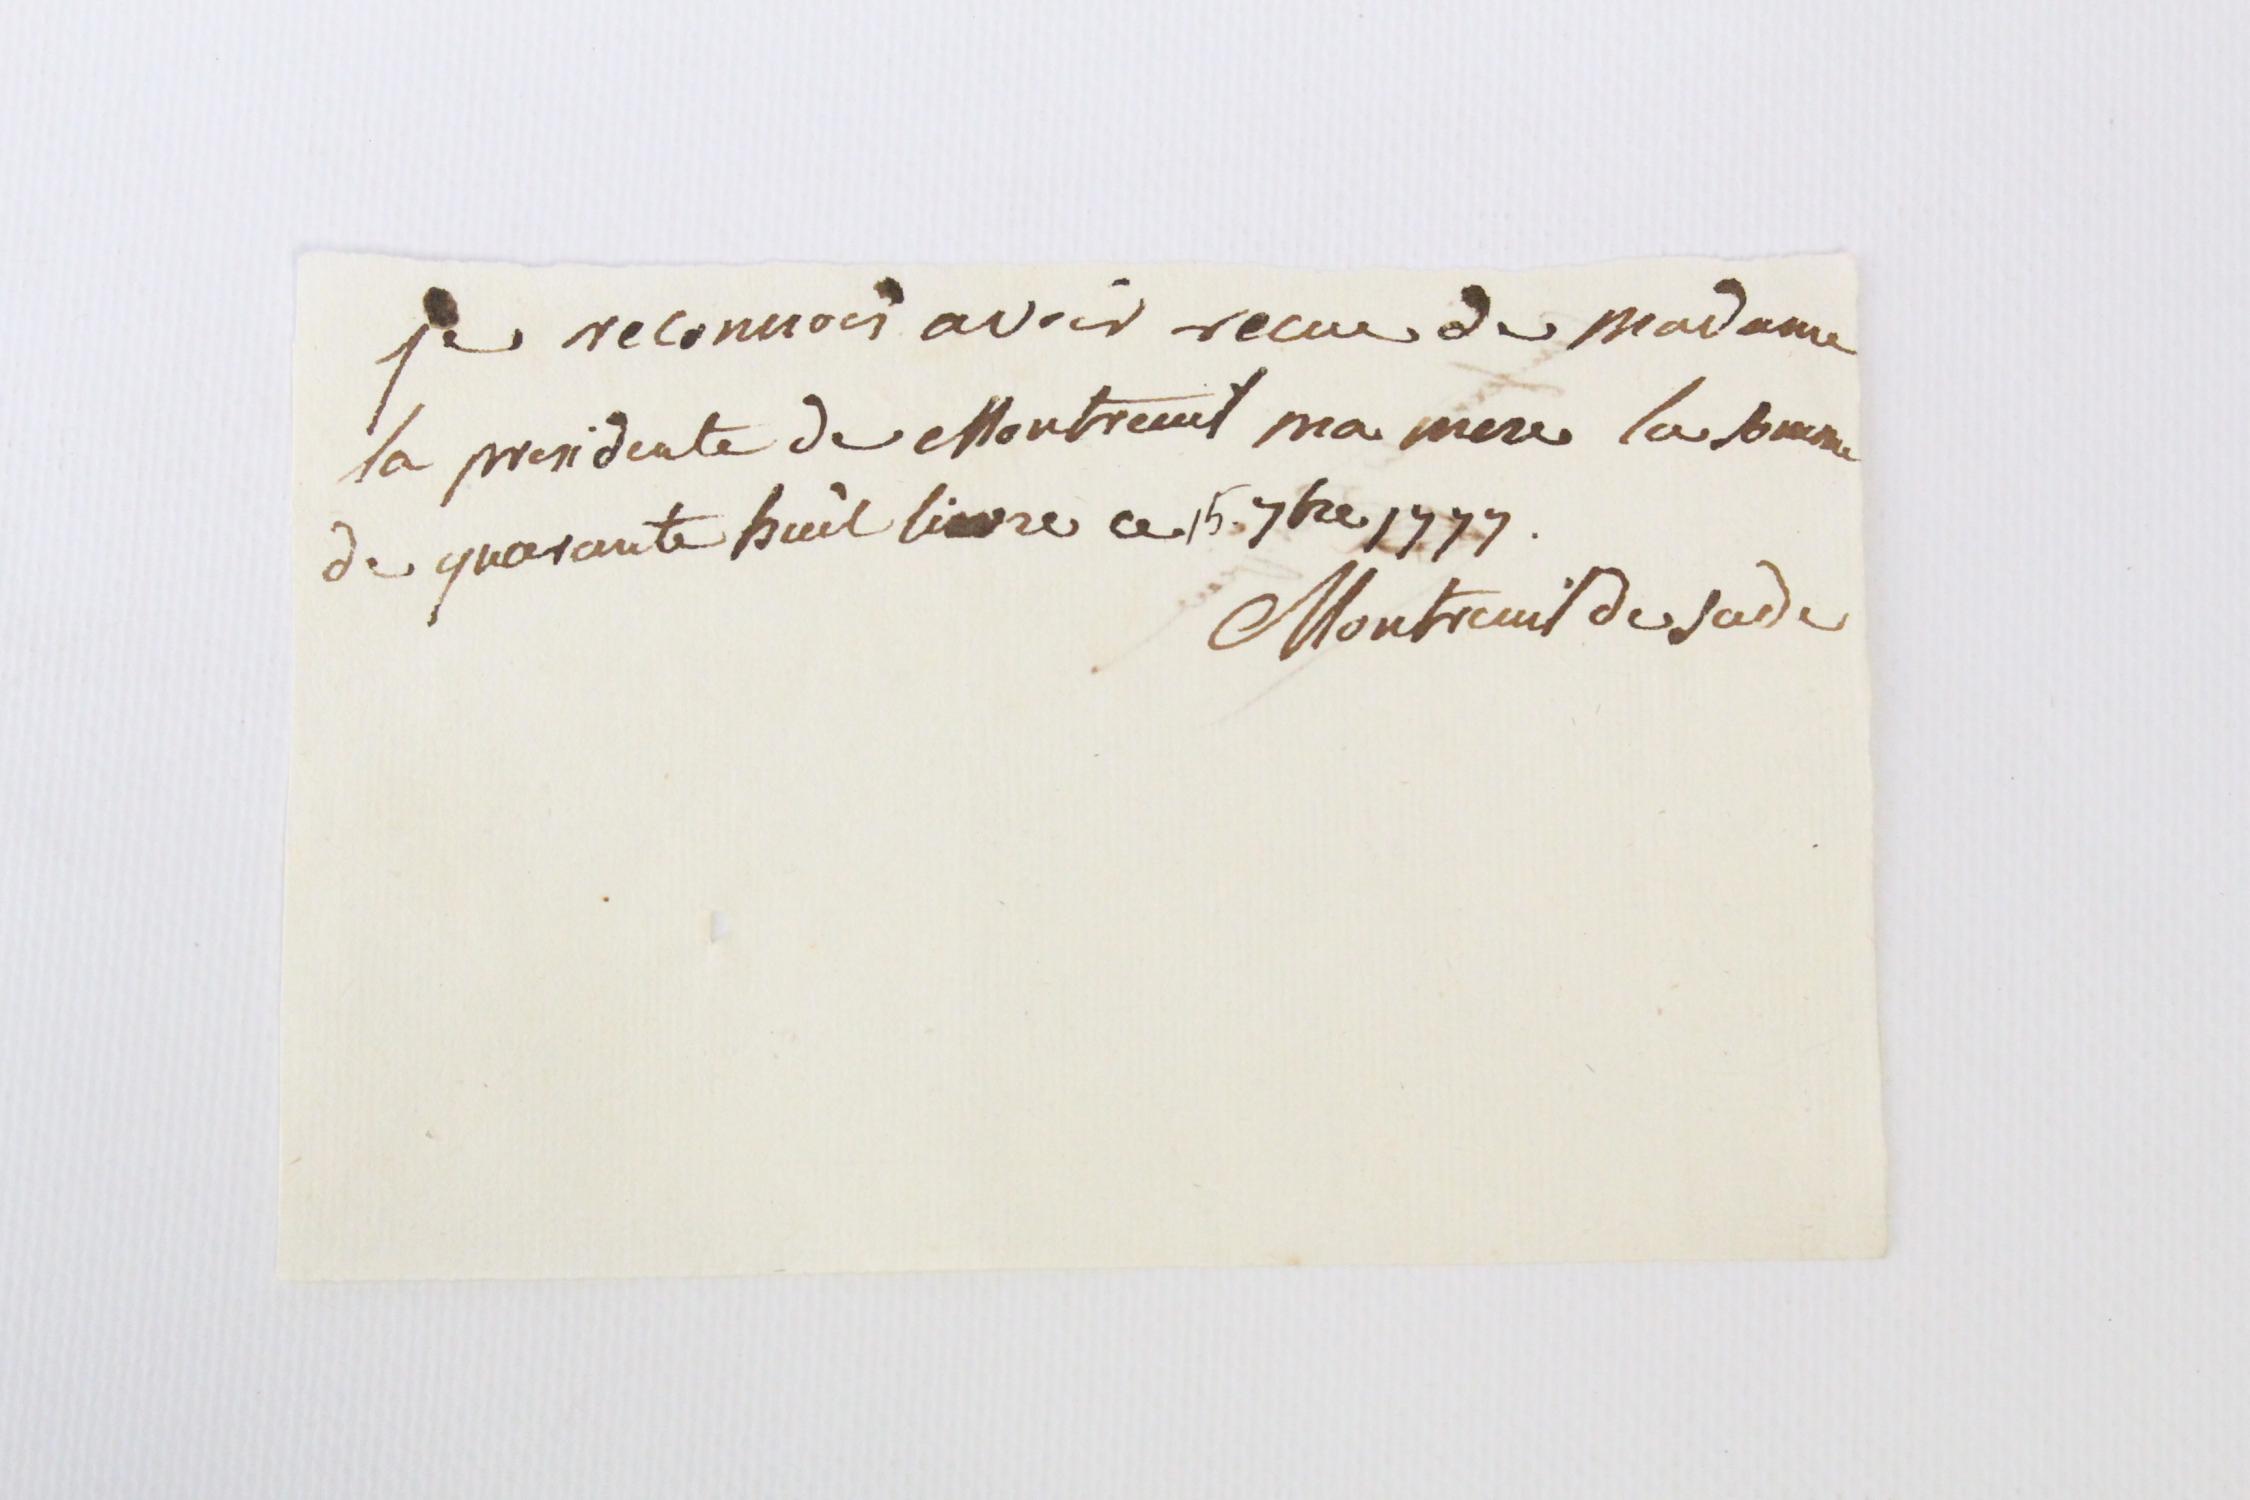 je reconnois avoir recue de Madame
la presidente de Montreuil ma mere la somme
de quarante huit livre ce 15. 7bre 1777.
Montreuil de Sade